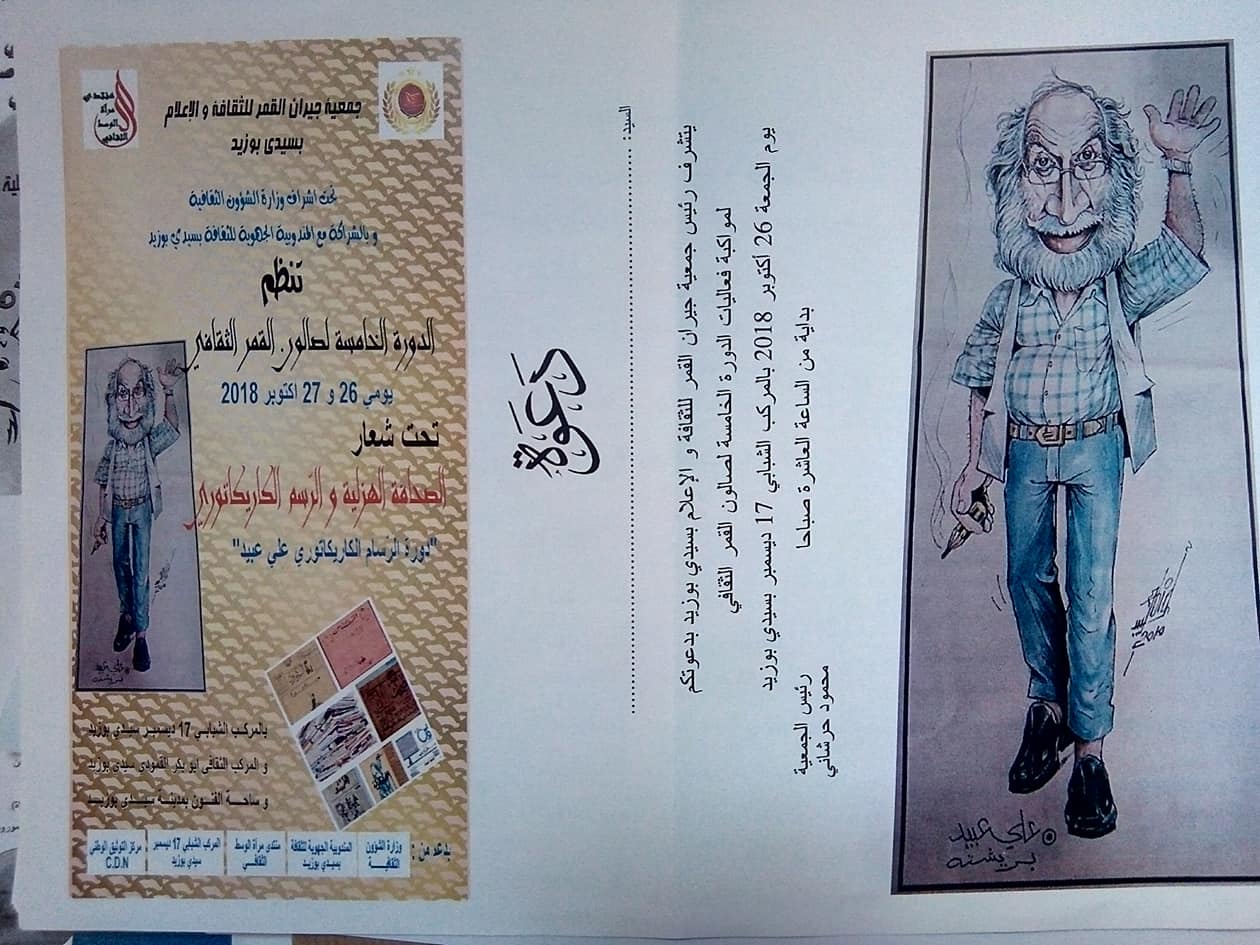 منتدى
مرآة
الوسط
الثقافي
جمعية جيران القمر للثقافة و الإعلام
بسيدي بوزيد
تحت اشراف وزارة الشؤون الثقافية
و بالشراكة مع المندوبية الجهوية للثقافة بسيدي بوزيد
تنظم
الدورة الخامسة لصالون القمر الثقافي
يومي 26 و 27 اكتوبر 2018
تحت شعار
الصحافة الهزلية و الرسم الكاريكاتوري
"دورة الرسام الكاريكاتوري علي عبيد"
علي عبيد
بريشته
بالمركب الشبابي 17 ديسمبر سيدي بوزيد
و المركب الثقافي ابو بكر القمودي سيدي بوزيد
و ساحة الفنون بمدينة سيدي بوزيد
بدعم من :
وزارة الشؤون الثقافية
المندوبية الجهوية للثقافة بسيدي بوزيد
منتدى مرآة الوسط الثقافي
المركب الشبابي 17 ديسمبر سيدي بوزيد
مركز التوثيق الوطني C.D.N
دعوة
السيد : ........................................
يتشرف رئيس جمعية جيران القمر للثقافة و الإعلام بسيدي بوزيد بدعوتكم
لمواكبة فعاليات الدورة الخامسة لصالون القمر الثقافي
يوم الجمعة 26 اكتوبر 2018 بالمركب الشبابي 17 ديسمبر بسيدي بوزيد
بداية من الساعة العاشرة صباحا
رئيس الجمعية
محمود حرشاني
2010
علي عبيد
بريشته